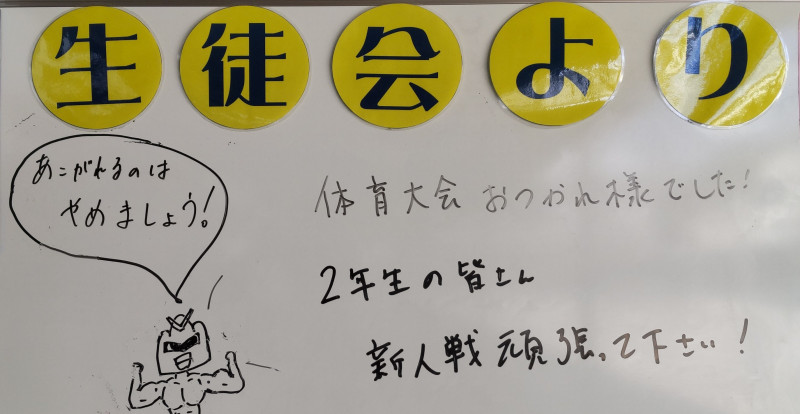 生徒会より
あこがれるのは
やめましょう!
体育大会 おつかれ様でした!
2年生の皆さん
新人戦 頑張って下さい!